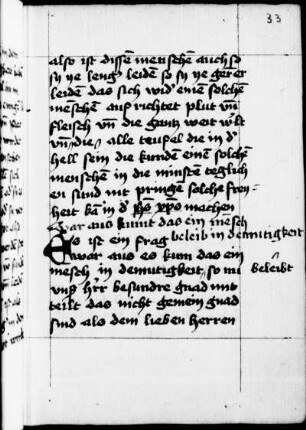 33
also ist dissē menschē auch so
sy ye leng leidē so sy ye gerer
leidē das sich wid' einē solchē
mēschē auf richtet plut vn̄
fleisch vn̄ die gantz welt
vn̄ die alle teufel die in d'
hell sein die kundē einē solchē
menschē in die minstē teglich
en sund nit pringē solche frey
heit kā in d' machen
war aus kumt das ein mēsch
beleib in demutigkeit
Es ist ein frag
war aus es kum das ein
mēsch in demutigkeit so mi
beleibt
vnß hr̄r besundre gnad mit
teilt das nicht gemein gnad
sind als dem lieben herren